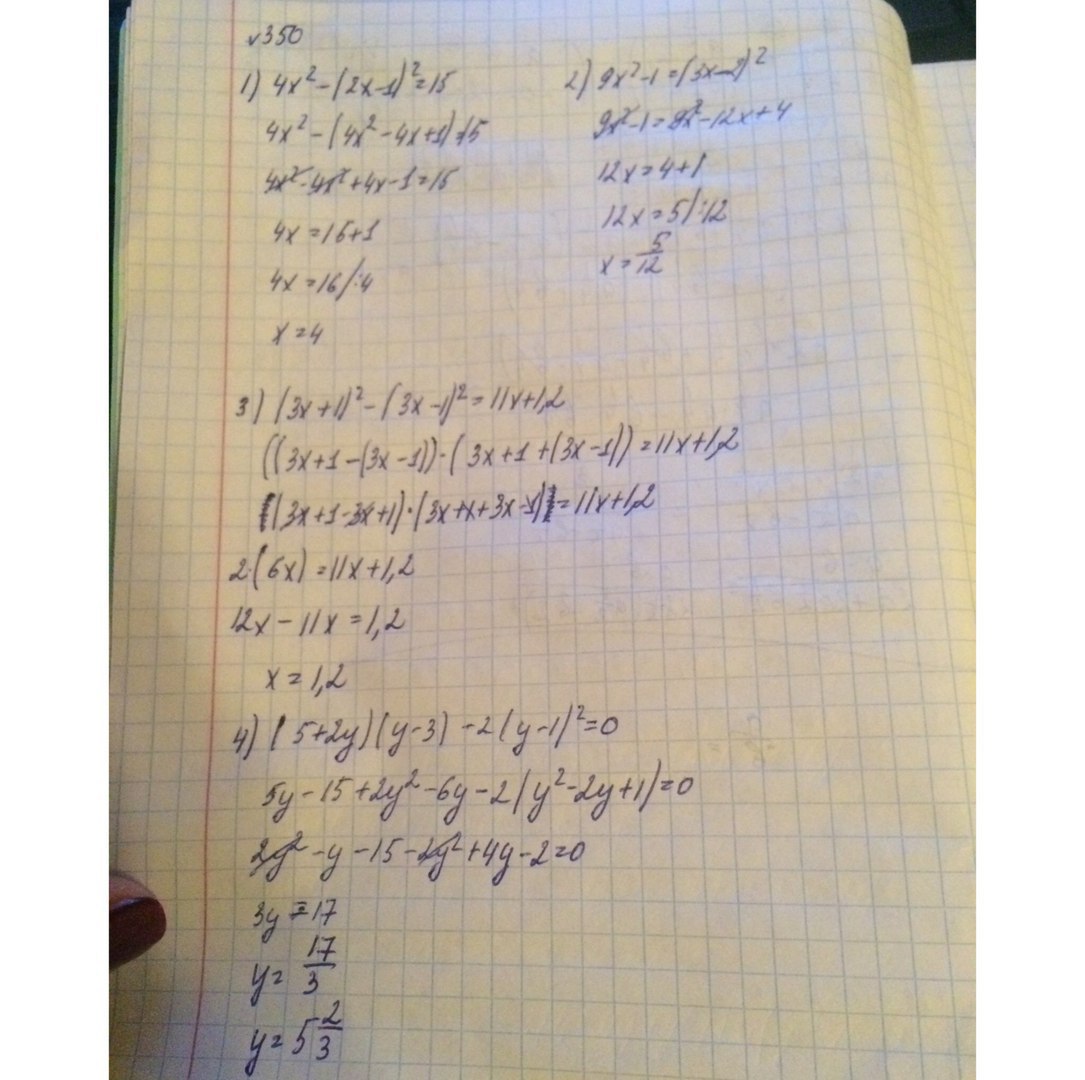 √350
1) 4x² - (2x-1)² = 15
4x² - (4x² - 4x + 1) = 15
4x² - 4x² + 4x - 1 = 15
4x = 15 + 1
4x = 16 /:4
x = 4
2) 9x² - 1 = (3x-2)²
9x² - 1 = 9x² - 12x + 4
12x = 4 + 1
12x = 5 /:12
x = 5/12
3) (3x+1)² - (3x-1)² = 11x + 1,2
((3x+1 - (3x-1)) · (3x+1 + (3x-1)) = 11x + 1,2
(3x+1-3x+1) · (3x+x+3x-1) = 11x + 1,2
2·(6x) = 11x + 1,2
12x - 11x = 1,2
x = 1,2
4) (5+2y)(y-3) - 2(y-1)² = 0
5y - 15 + 2y² - 6y - 2(y² - 2y + 1) = 0
2y² - y - 15 - 2y² + 4y - 2 = 0
3y = 17
y = 17/3
y = 5 2/3